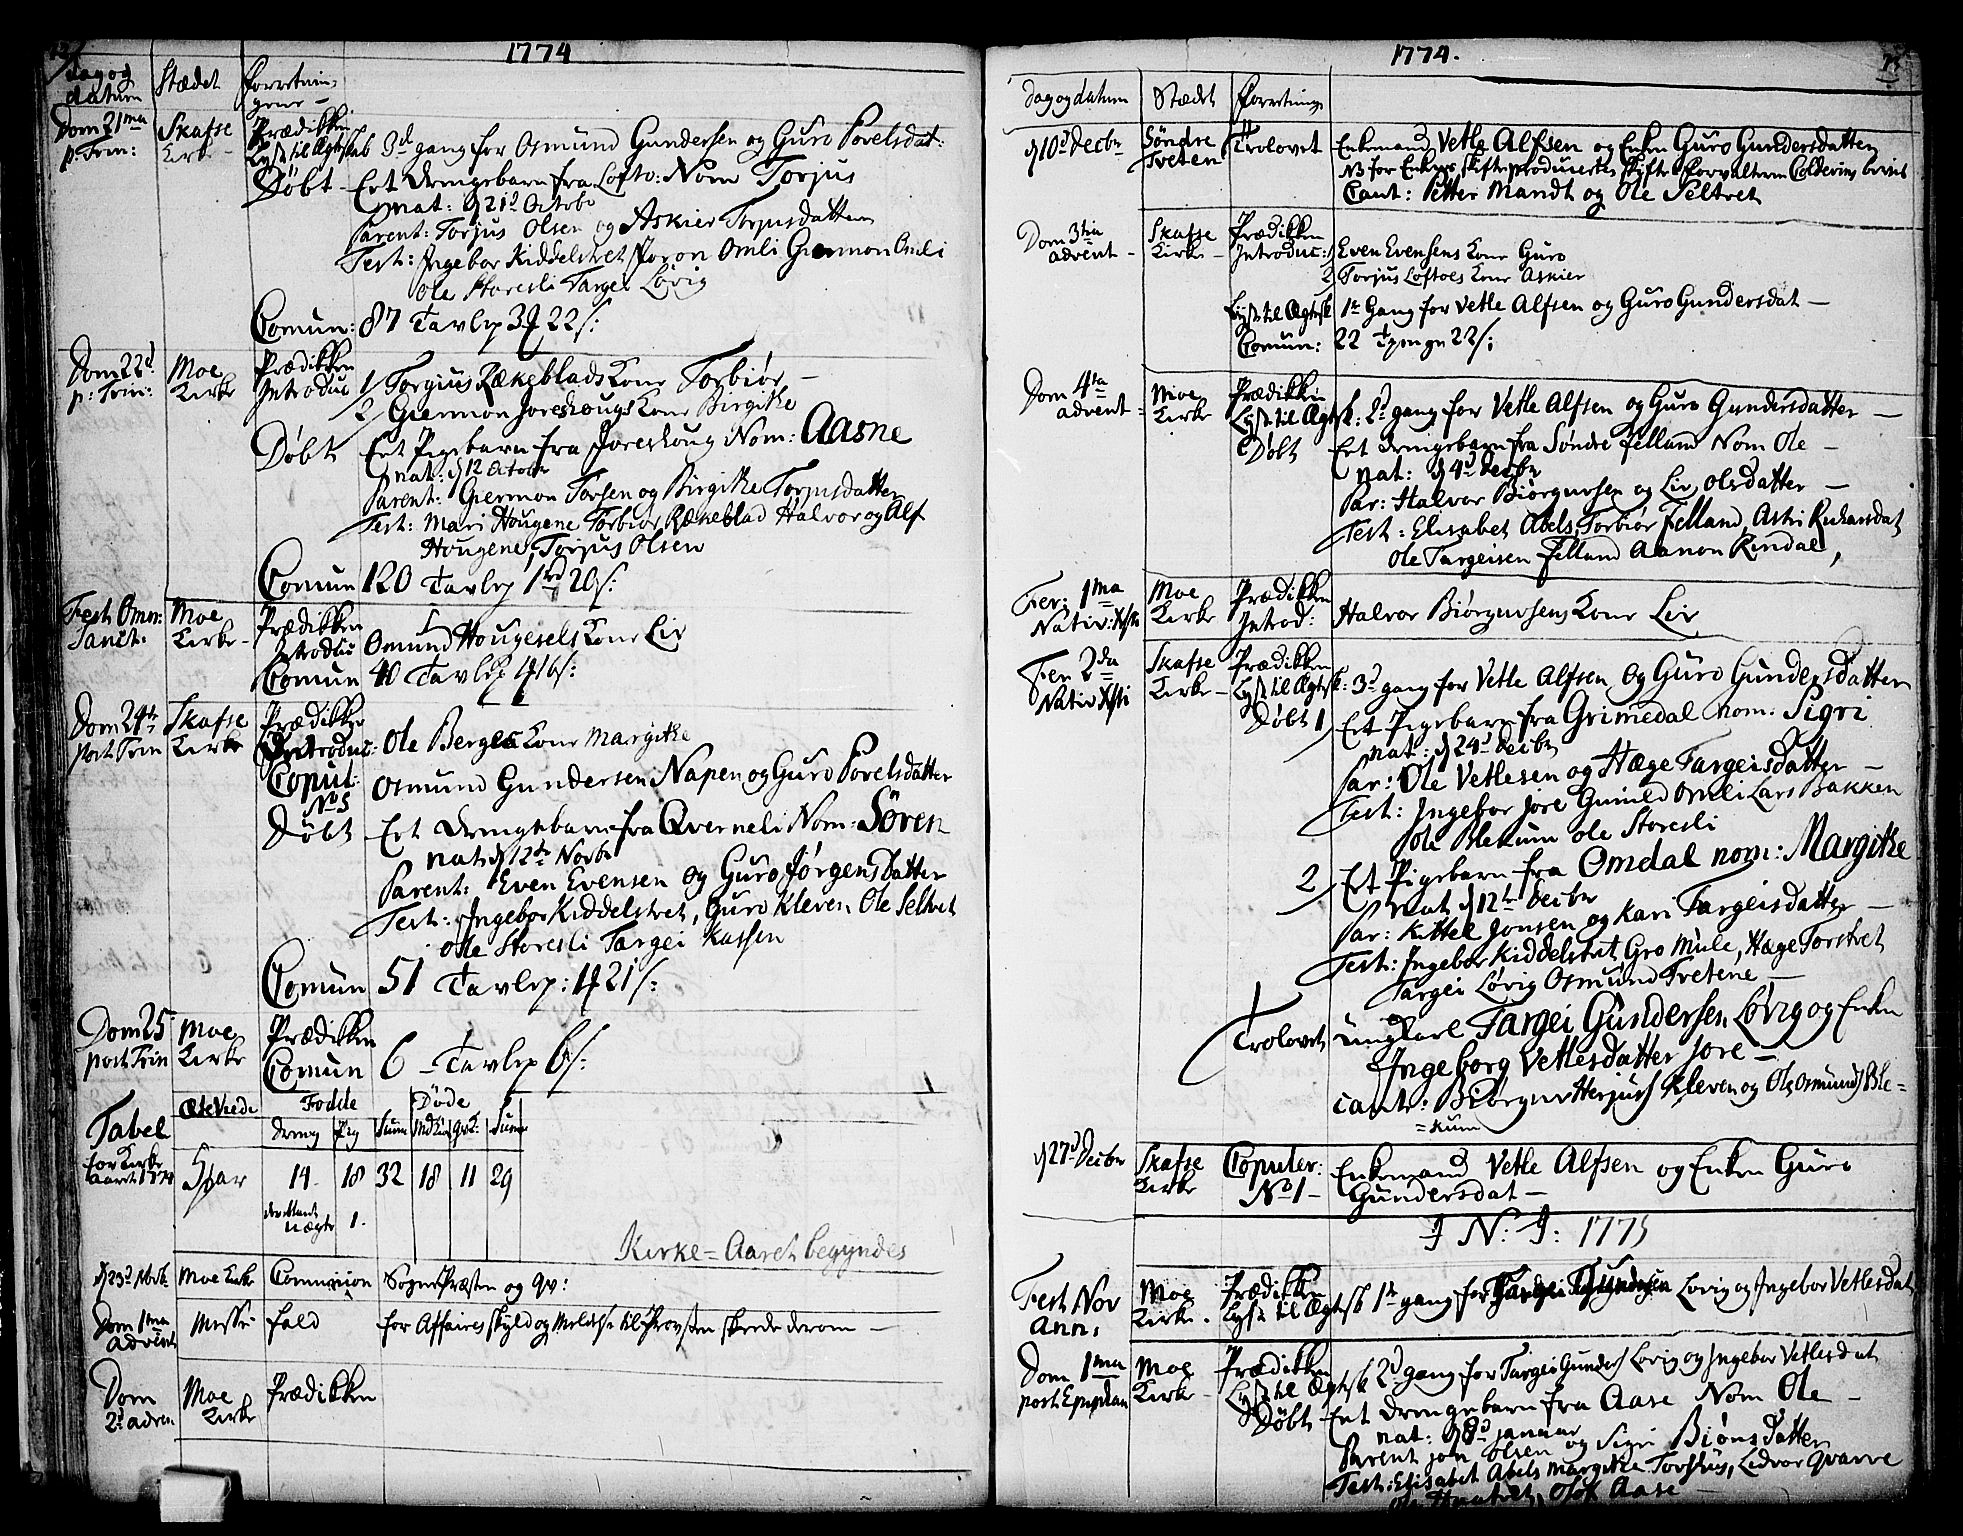 1774
dag og datum Stædet Forretningerne
Dom 21ma p: Trin: Skafse Kirke Prædikken
Lyst til Ægteskab 3d gang for Osmund Gundersen og Guro Povelsdat:
Døbt Eet drengebarn fra Lofto: Nom Torjus
nat: d 21d Octobr
Parent: Torjus Olsen og Askier Torjusdatter
Test: Ingebor Kiddelstvet Joron Omli Giermon Omli
Ole Storesli Targei Løvig
Comun: 87 Tavlep 3 22 s:
Dom 22d p: Trin: Moe Kirke Prædikken
Introduc 1/ Torgius Rækeblads Kone Torbiør
2/ Giermon Joreshougs Kone Birgitte
Døbt Eet Pigebarn fra Joreshoug Nom: Aasne
nat: d 12 Octobr
Parent: Giermon Torsen og Birgitte Torjusdatter
Test: Mari Hougene Torbiør Rækeblad Halvor og Alf
Hougene, Torjus Olsen
Comun 120 Tavlep 1rd 20 s:
Fest Omn: Sanct: Moe Kirke Prædikken
Introduc Osmund Hougesels Kone Liv
Comun 40 Tavlep 16 s:
Dom 24te post Trin Skafse Kirke Prædikken
Introduc: Ole Berges Kone Margitte
Coput: No 5 Osmund Gundersen Napen og Guro Povelsdatter
Døbt Eet drengebarn fra Qverneli Nom: Søren
nat d 12te Novbr
Parent: Even Evensen og Guro Jørgensdatter
Test: Ingebor Kiddelstvet, Guro Kleven Ole Seltvet
Ole Storesli Targei Kassen
Comun 51 Tavlep: 1 21 s:
Dom 25 post Trin Moe Kirke Prædikken
Comun 6 Tavlep 6 s:
Tabel for Kirke Aaret 1774
Fødde Døde
dreng Pig Sum Mdk Qvk: Sum
5 par 14. 18 32 18 11 29
deriblandt uægte 1.
Kirke=Aaret begyndes
d 23d Novbr Moe Kirke Communion Sogne Præsten og qv:
Dom 1ma Advent Messe fald for Affaires skyld og Meldelse til Provsten skeede derom
Dom 2d adven Moe Kirke Prædikken
1774.
Dag og datum Stædet Forretning
d 10d Decbr Søndre Tveten Trolovet Enkemand Vetle Alfsen og Enken Guro Gundersdatter
NB for Enkens skifte produceertes skifte forvalteren Colderins beviis
Caut: Petter Mandt og Ole Seltvet
Dom 3tia advent Skafse Kirke Prædikken
Introduc: 1 Even Evensens Kone Guro
2 Torjus Loftoes Kone Askier
Lyst til Ægtesk 1te Gang for Vetle Alfsen og Guro Gundersdat
Comun: 22 Penge 22 s;
Dom 4ta advent Moe Kirke Prædikken
Lyst til Ægtesk: 2d gang for Vetle Alfsen og Guro Gundersdatter
Døbt Eet drengebarn fra Søndre Felland Nom Ole
nat: d 4d Decbr
Par: Halvor Biørgursen og Liv Olsdatter
Test: Elisabet Abels, Torbiør Felland, Astri Rukansdat
Ole Targeisen Felland Aanon Rindal,
Fer: 1ma Nativ: Xsti Moe Kirke Prædikken
Introd: Halvor Biørgursens Kone Liv
Fer 2da Nativ Xsti Skafse Kirke Prædikken
Lyst til Ægtesk: 3d gang for Vetle Alfsen og Guro Gundersdatter
Døbt 1 Et Pigebarn fra Grimedal nom: Sigri
nat: d 24d Decbr
Par: Ole Vetlesen og Hæge Targeisdatter
Test: Ingebor Jore Gunild Omli Lars Bakken
Ole Blekum Ole Storesli
2/ Et Pigebarn fra Omdal nom: Margitte
nat d 12te Decbr
Par: Kittel Jonsen og Kari Targeisdatter
Test: Ingebor Kiddelstvet, Gro Mule, Hæge Torstvet
Targei Løvig Osmund Tvetene
Trolovet Ungkarl Targei Gundersen Løvig og Enken
Ingeborg Vetlesdatter Jore
Caut: Biørgur Herjus Kleven og Ole Osmunds Ble=
=kum
d 27d Decbr Skafse Kirke Copuler: No 1 Enkemand Vetle Alfsen og Enken Guro
Gundersdat
I N: I: 1775
Fest Nov Ann: Moe Kirke. Prædikken
Lyst til Ægtesk 1te gang for Targei Gundersen Lovig og Ingebor Vetlesdat
Dom 1ma post Epiphan Moe Kirke Prædikken
Lyst til Ægtesk 2d gang for Targei Gunders Lovig og Ingebor Vetlesdat
Døbt Eet drengebarn fra Aase Nom Ole
nat: d 8d januar
Parent Jon Olsen og Sigri Biønsdatter
Test: Elisabet Abels Margitte Torshus, Ledvor Qvarve
Olof Aase